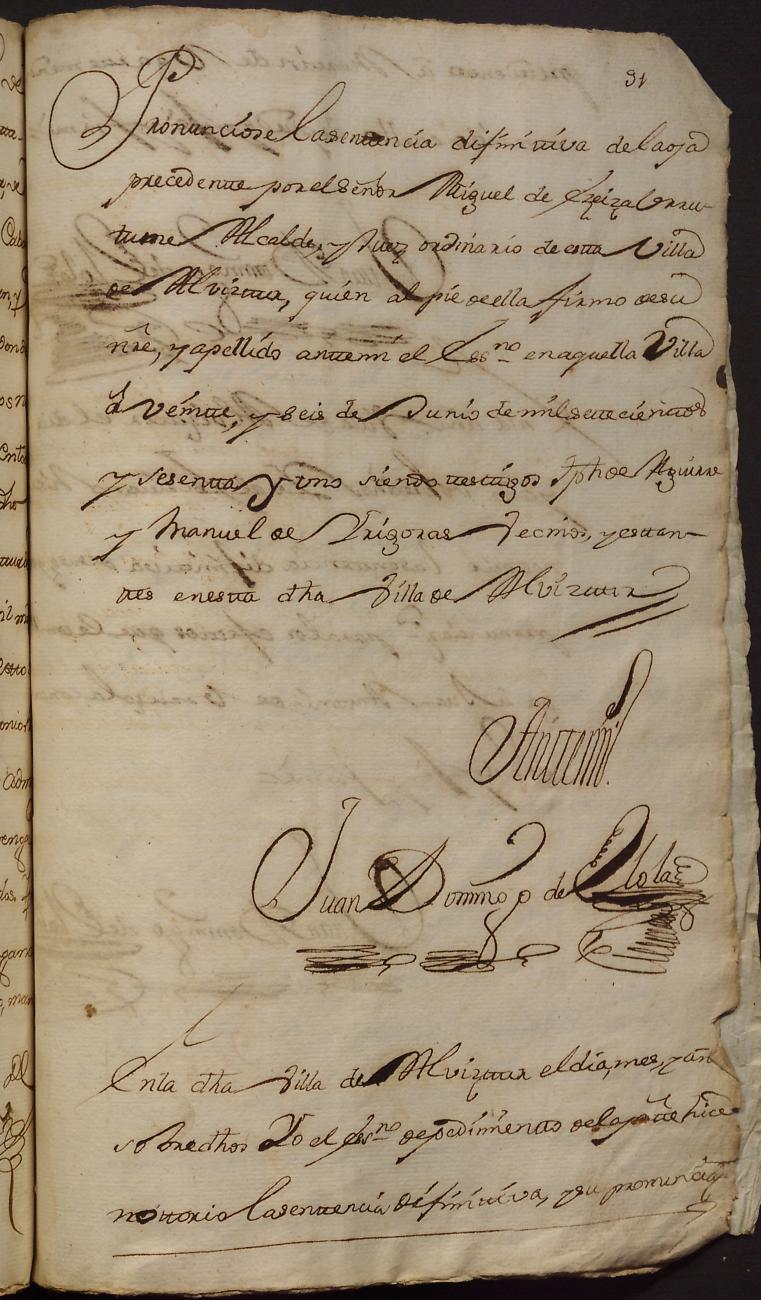 31
Pronunciose la sentencia difinitiva de la oja
precedente por el señor Miguel de Eizal Urru-
tume Alcalde, y Juez ordinario de esta Villa
de Alviztur, quien al pie de ella firmo de su
nre, y apellido antemi el Essno en aquella Villa
â veinte, y seis de Junio de mil setecientos
y sesenta y uno siendo testigos Jph de Aguirre
y Manuel de Yrigoras Vecinos, y estan-
tes en esta dha Villa de Alviztur
Antemi.
Juan Domingo de Olola
En la dha Villa de Alviztur el dia, mes, y añ
sobredhos Yo el Essno de pedimento de la parte hice
nottorio la sentencia difinitiva, y su pronuncia